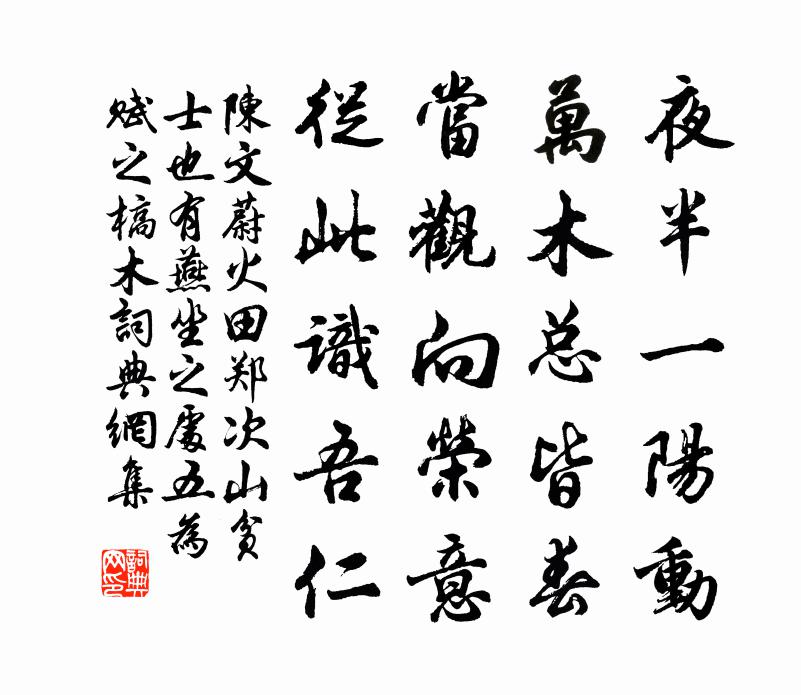 夜半一陽動
萬木总皆春
當觀向榮意
從此識吾仁
陳文蔚火田郑次山貧
士也有燕坐之處五為
賦之槁木詞典網集
詞典网印